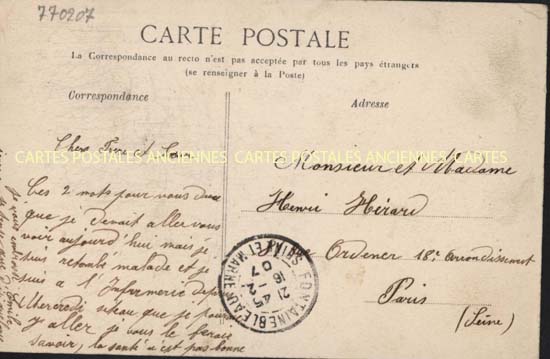 770207
CARTE POSTALE
La Correspondance au recto n'est pas acceptée par tous les pays étrangers
(se renseigner à la Poste)
Correspondance
Adresse
Chers Frère et Sœur
CARTES POSTALES ANCIENNES CARTES POSTALES ANCIENNES
Ces 2 mots pour vous dire
que je devait aller vous
voir aujourd'hui mais je
suis retombé malade et je
suis a l'Infermerie depuis
Mercredi sitau que je pourai
y aller je vous le ferai
savoir, la santé n'est pas bonne
Je vous embrasse
Monsieur et Madame
Henri Hérard
Ordener 18e Arrondissement
Paris
(Seine)
FONTAINEBLEAU
SEINE ET MARNE
21 45
16 - 2
07